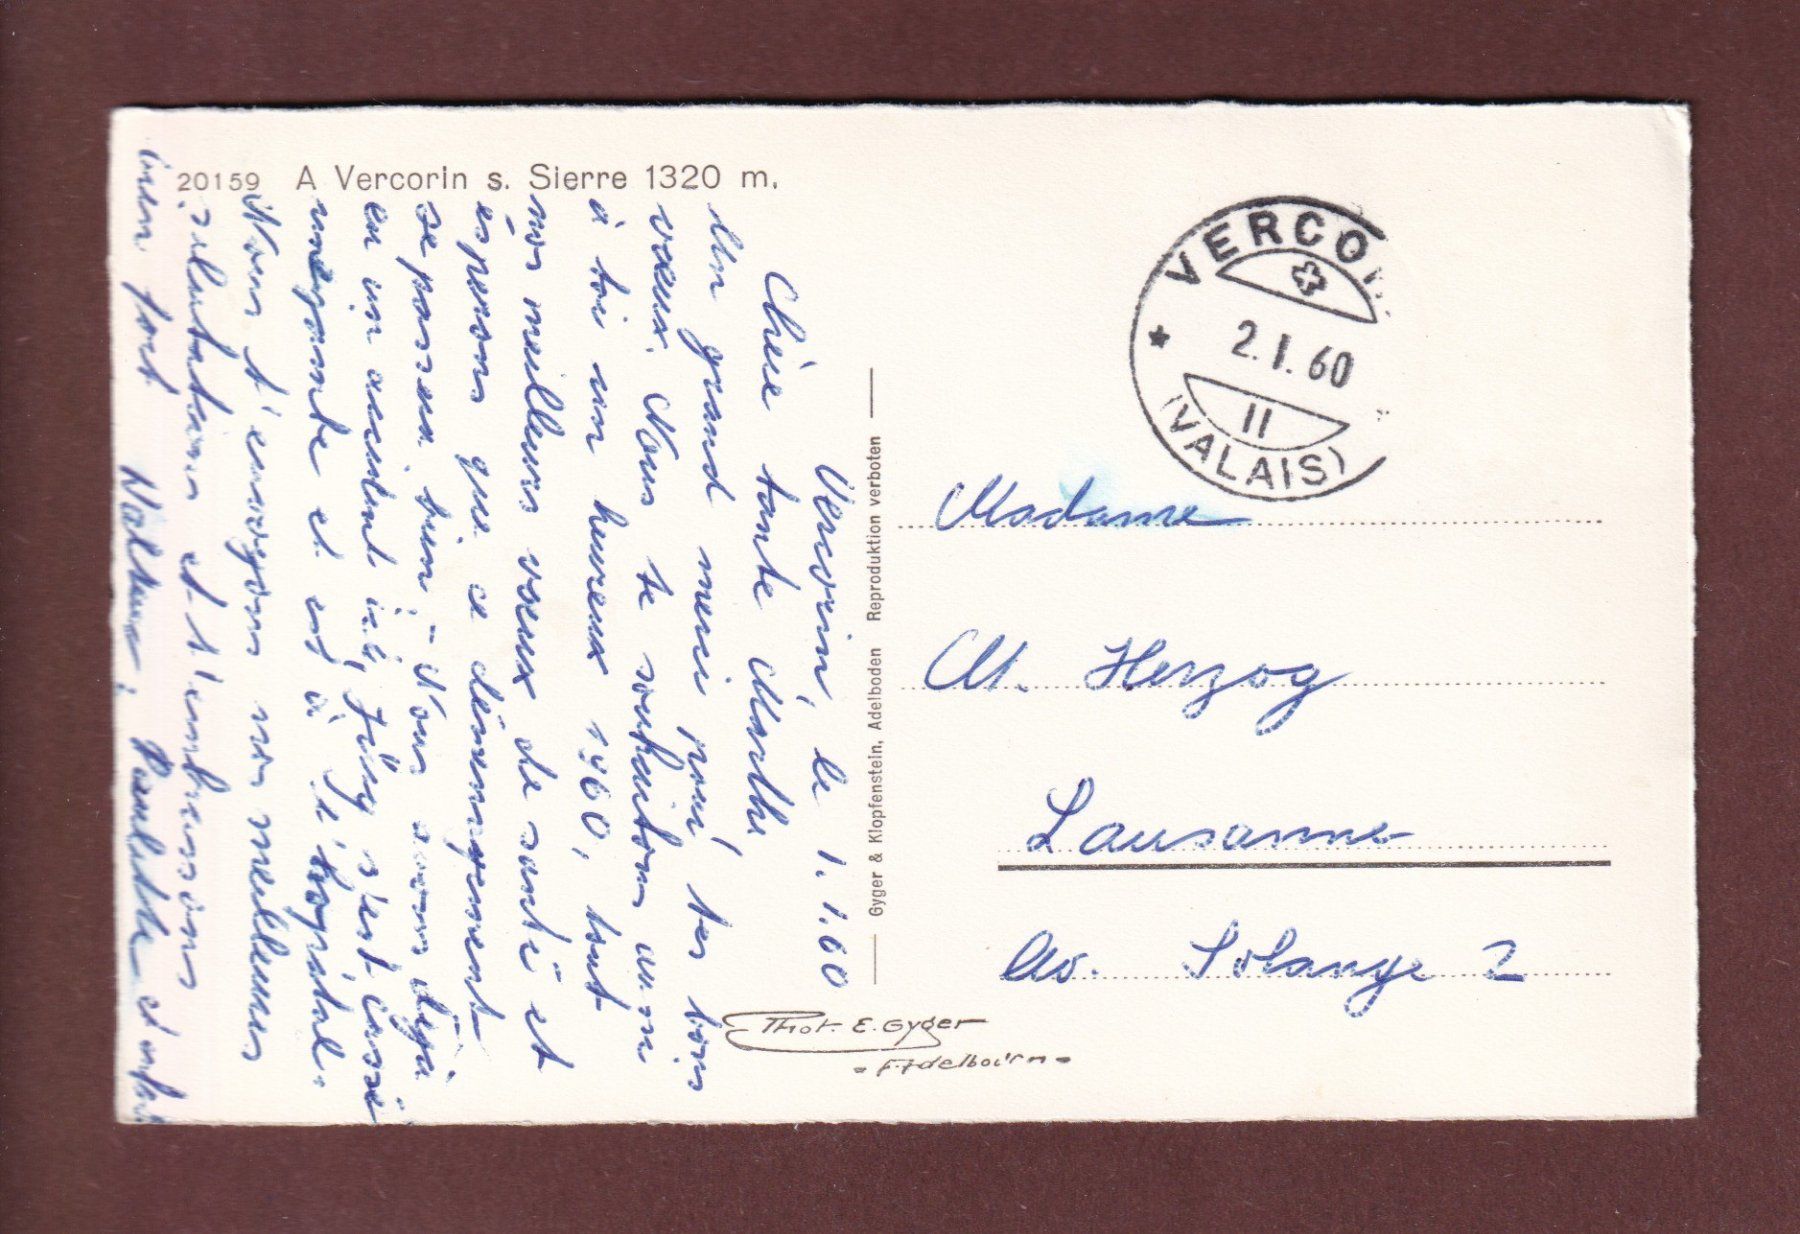 20159 A Vercorin s. Sierre 1320 m.
Vercorin, le 1.1.60
Chère tante Marthe,
Un grand merci pour tes bons
voeux. Nous te souhaitons aussi
à toi un heureux 1960, tout
nos meilleurs voeux de santé et
espérons que ce déménagement
se passera bien. Nous avons déjà
eu un accident ici, Jürg s'est cassé
une jambe et est à l'hôpital.
Nous t'envoyons nos meilleures
salutations et t'embrassons
bien fort
Paulette et
Gyger & Klopfenstein, Adelboden Reproduktion verboten
Phot. E. Gyger
- Adelboden -
VERCO
2.I.60
II
(VALAIS)
Madame
M. Herzog
Lausanne
Av. Solange 2